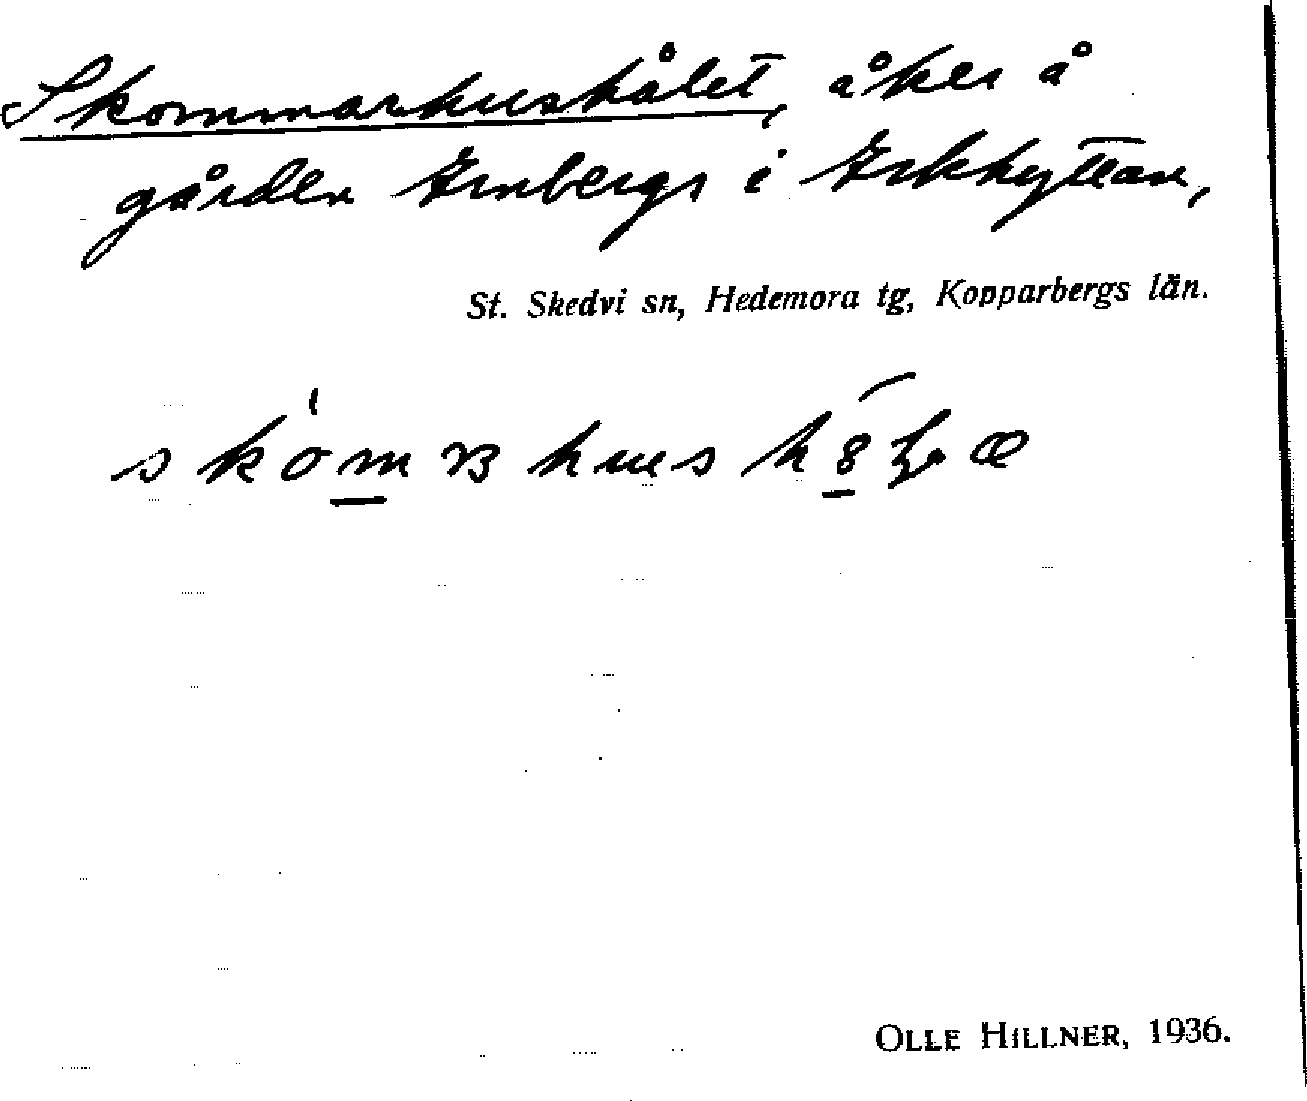 Skommarhushålet, åker å
gården Ernbergs i Erkhyttan,
St. Skedvi sn, Hedemora tg, Kopparbergs län.
OLLE HILLNER, 1936.